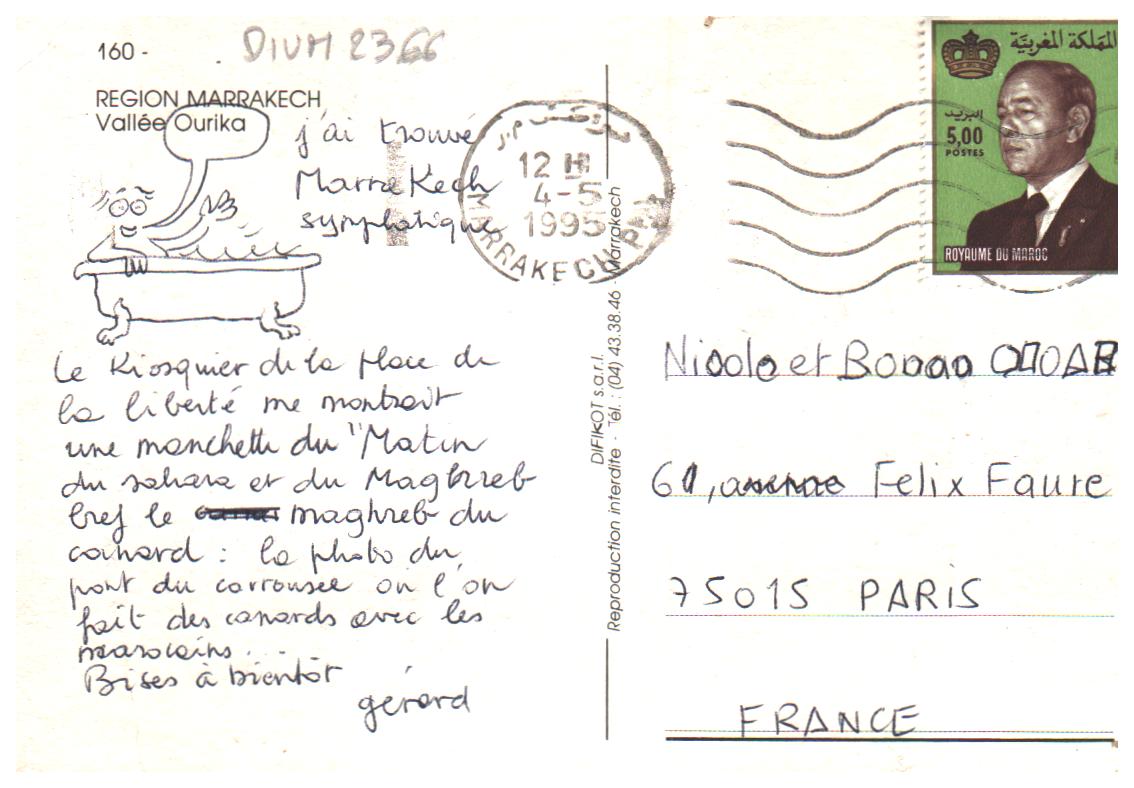 160 -
DIVM 2366
REGION MARRAKECH
Vallée Ourika
j'ai trouvé
MarraKech
symphatique
12 H
4-5
1995
MARRAKECH
المملكة المغربية
البريد
5,00
POSTES
ROYAUME DU MAROC
le Kiosquier de la place de
la liberté me montrait
une manchette du "Matin
du sahara et du Maghreb
bref le maghreb du
canard : la photo du
pont du carrousel où l'on
fait des canards avec les
marocains...
Bises à bientôt
gérard
DIFIKOT s.a.r.l.
Reproduction interdite - Tél. : (04) 43.38.46 - Marrakech
Nicole et
61, avenue Felix Faure
75015 PARIS
FRANCE